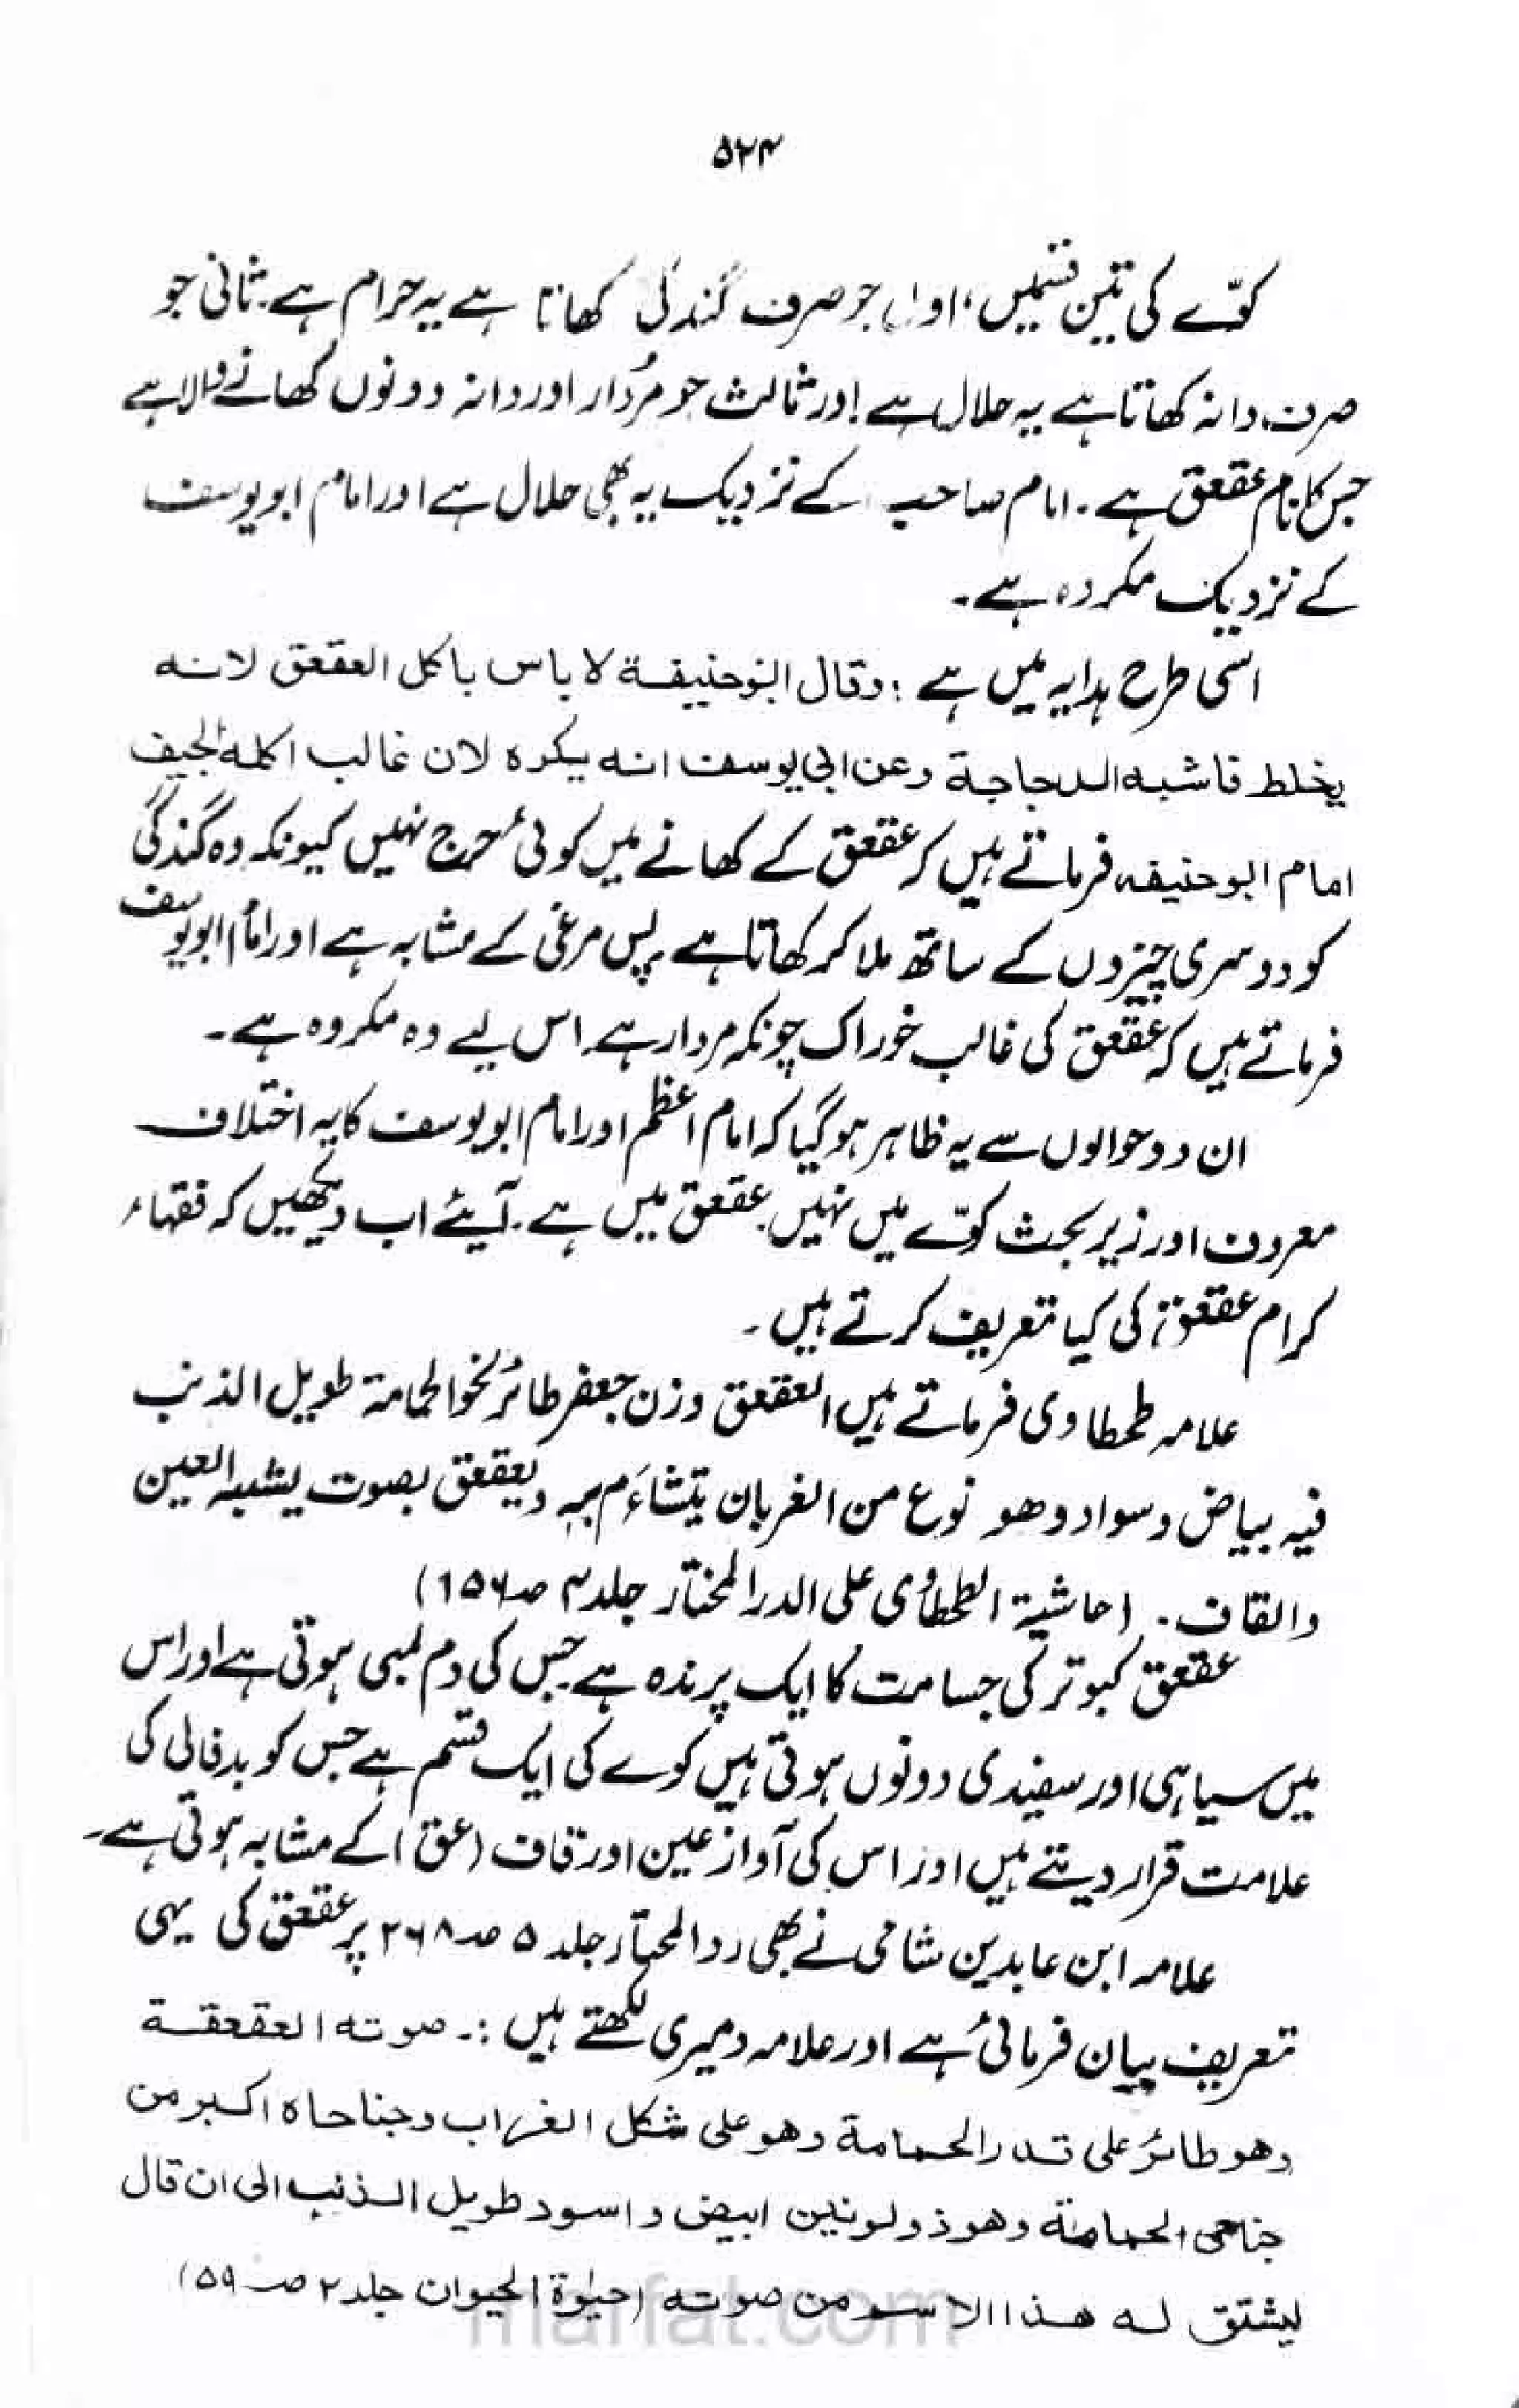 ۵۲۴
کوّے کی تین قسمیں، اول جو صرف گندگی کھاتا ہے یہ حرام ہے۔ ثانی جو
صرف دانہ کھاتا ہے یہ حلال ہے اور ثالث جو مُردار اور دانہ دونوں کھانے والا ہے
جس کا نام عقعق ہے۔ امام صاحب کے نزدیک یہ بھی حلال ہے اور امام ابو یوسف
کے نزدیک مکروہ ہے۔
اسی طرح ہدایہ میں ہے : وقال ابوحنیفة لا باس باکل العقعق لانه
یخلط فاشبه الدجاجة وعن ابی یوسف انه یکره لان غالب اکله الجیف
امام ابو حنیفہ فرماتے ہیں کہ عقعق کے کھانے میں کوئی حرج نہیں کیونکہ وہ گندگی
کو دوسری چیزوں کے ساتھ ملا کر کھاتا ہے پس مرغی کے مشابہ ہے اور امام ابو یوسف
فرماتے ہیں کہ عقعق کی غالب خوراک چونکہ مردار ہے اس لیے وہ مکروہ ہے۔
ان دو حوالوں سے یہ ظاہر ہو گیا کہ امام اعظم اور امام ابو یوسف کا یہ اختلاف
معروف اور زیر بحث کوّے میں نہیں عقعق میں ہے۔ آیئے اب دیکھیں کہ فقہاء
کرام عقعق کی کیا تعریف کرتے ہیں۔
علامہ طحطاوی فرماتے ہیں العقعق وزن جعفر طائر نحو الحمامة طویل الذنب
فیه بیاض وسواد وهو نوع من الغربان یتشاءم به ویعقعق بصوت یشبه العین
والقاف۔ (حاشیة الطحطاوی علی الدر المختار جلد ۴ صـ ۱۵۶)
عقعق کبوتر کی جسامت کا ایک پرندہ ہے جس کی دم لمبی ہوتی ہے اور اس
میں سیاہی اور سفیدی دونوں ہوتی ہیں کوے کی ایک قسم ہے جس کو بدفالی کی
علامت قرار دیتے ہیں اور اس کی آواز عین اور قاف (عق) کے مشابہ ہوتی ہے۔
علامہ ابن عابدین شامی نے بھی رد المحتار جلد ۵ صـ ۲۶۸ پر عقعق کی یہی
تعریف بیان فرمائی ہے اور علامہ دمیری لکھتے ہیں :۔ صوته العقعقة
وهو طائر علی قدر الحمامة وهو علی شکل الغراب وجناحاه اکبر من
جناحی الحمامة وهو ذو لونین ابیض واسود طویل الذنب الی ان قال
لیشتق له هذا الاسم من صوته (حیٰوة الحیوان جلد ۲ صـ ۵۹)
marfat.com